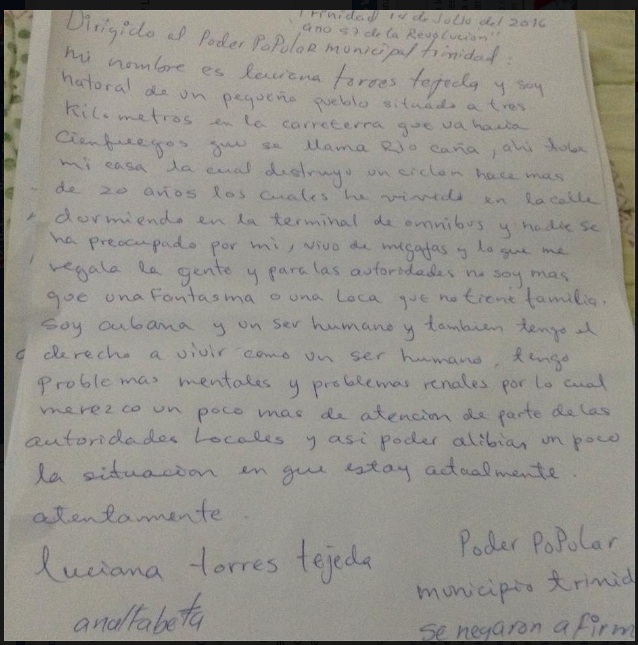 Trinidad 14 de Julio del 2016
"año 57 de la Revolucion"
Dirigido al Poder PoPular municipal trinidad:
mi nombre es luciana torres tejeda y soy
natoral de un pequeño pueblo situado a tres
Kilometros en la carreterra que va hacia
Cienfuegos que se llama Rio caña, ahi tube
mi casa la cual destruyo un ciclon hace mas
de 20 años los cuales he vivido en la calle
durmiendo en la terminal de omnibus y nadie se
ha preocupado por mi, vivo de migajas y lo que me
regala la gente y para las autoridades no soy mas
que una fantasma o una Loca que no tiene familia.
Soy cubana y un ser humano y tambien tengo el
derecho a vivir como un ser humano. tengo
problemas mentales y problemas renales por lo cual
merezco un poco mas de atencion de parte de las
autoridades Locales y asi poder alibiar un poco
la situacion en que estoy actualmente.
atentamente.
luciana torres tejeda
analfabeta
Poder PoPular
municipio trinid
se negaron a firm